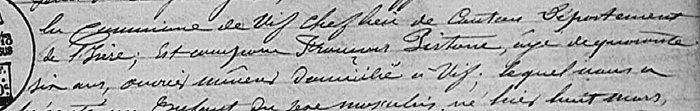 la Commune de Vif chef lieu de Canton Département
de l'Isère; Est comparu François Pistone, âgé de quarante
six ans, ouvrier mineur domicilié à Vif; lequel nous a
Enfant du sexe masculin, né hier huit mars,